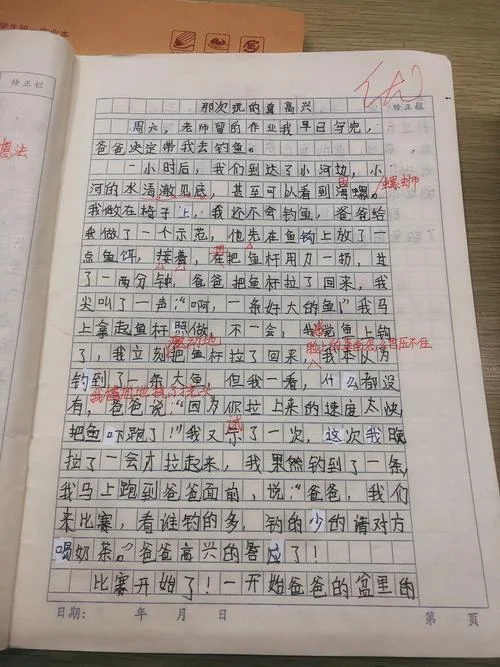 优
修正栏
修正栏
想法
那次玩的真高兴
周六，老师留的作业我早已写完，
爸爸决定带我去钓鱼。
一小时后，我们到达了小河边，小
螺蛳
河的水清澈见底，甚至可以看到海螺。
我做在椅子上，我还不会钓鱼，爸爸给
我做了一个示范，他先在鱼钩上放了一
点鱼饵，接着，在把鱼杆用力一扔，过
了一两分钟，爸爸把鱼杆拉了回来，我
尖叫了一声：“啊，一条好大的鱼！”我马
上拿起鱼杆照做，不一会，我觉鱼上钩
激动地
脸上的喜悦怎么也压不住
了，我立刻把鱼杆拉了回来，我本以为
钓到了一条大鱼，但我一看，什么都没
有，爸爸说：“因为你拉上来的速度太快，
试
把鱼吓跑了！”我又示了一次，这次我晚
拉了一会才拉起来，我果然钓到了一条，
我马上跑到爸爸面前，说：“爸爸，我们
来比赛，看谁钓的多，钓的少的请对方
喝奶茶。”爸爸高兴的答应了！
比赛开始了！一开始爸爸的盆里的
日期： 年 月 日 第 页